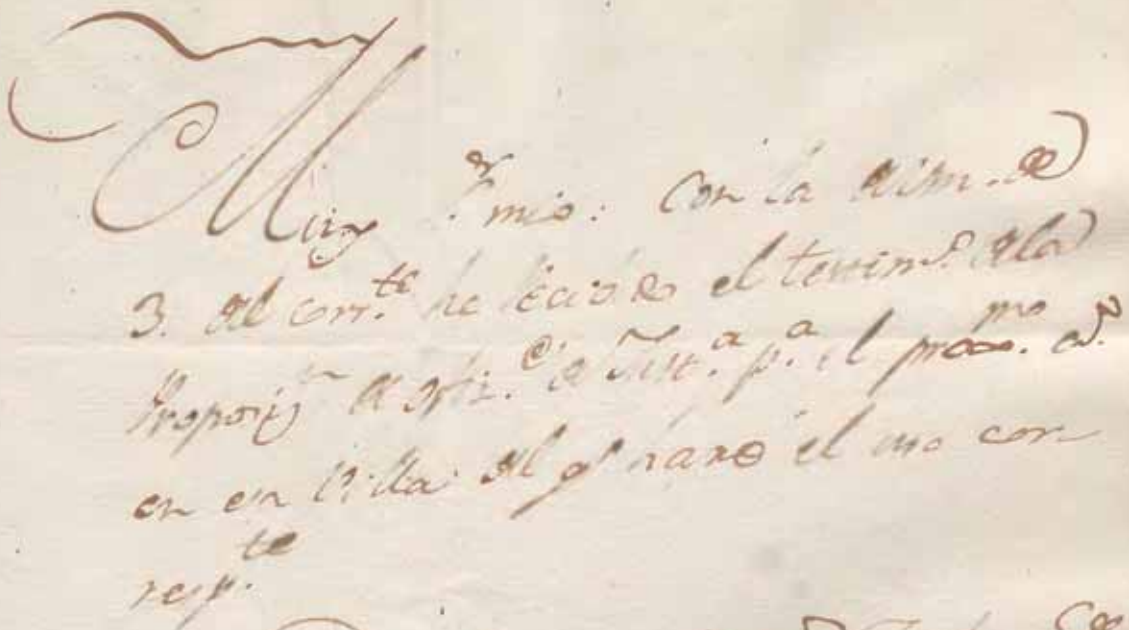 Muy S.r mio: Con la de Vm. de
3. del corr.te he recivido el testim.o de la
Proposiz.n de ofiz.s de Just.a p.a el prox.mo a.o
en esa Villa: del q.e haré el uso cor-
resp.te